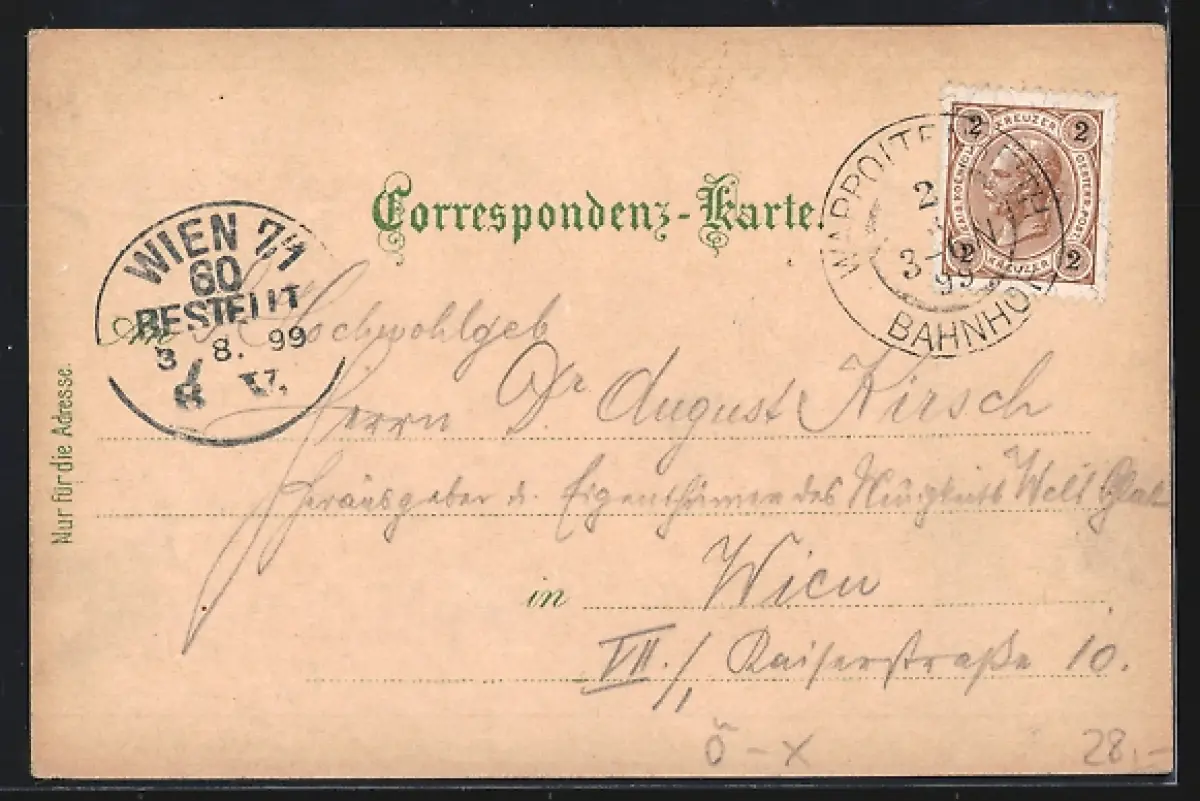 Correspondenz-Karte.
2 KREUZER 2
KAIS. KOENIGL. OESTERR. POST
2 KREUZER 2
2
3-
99
BAHNHOF
WIEN 7/1
60
BESTELLT
3. 8. 99
8 V.
An S. Hochwohlgeb
Herrn Dr August Kirsch
Herausgeber u. Eigenthümer des Neuigkeits Welt Blatt
in Wien
VII./1 Kaiserstraße 10.
Nur für die Adresse.
ö - x
28.-